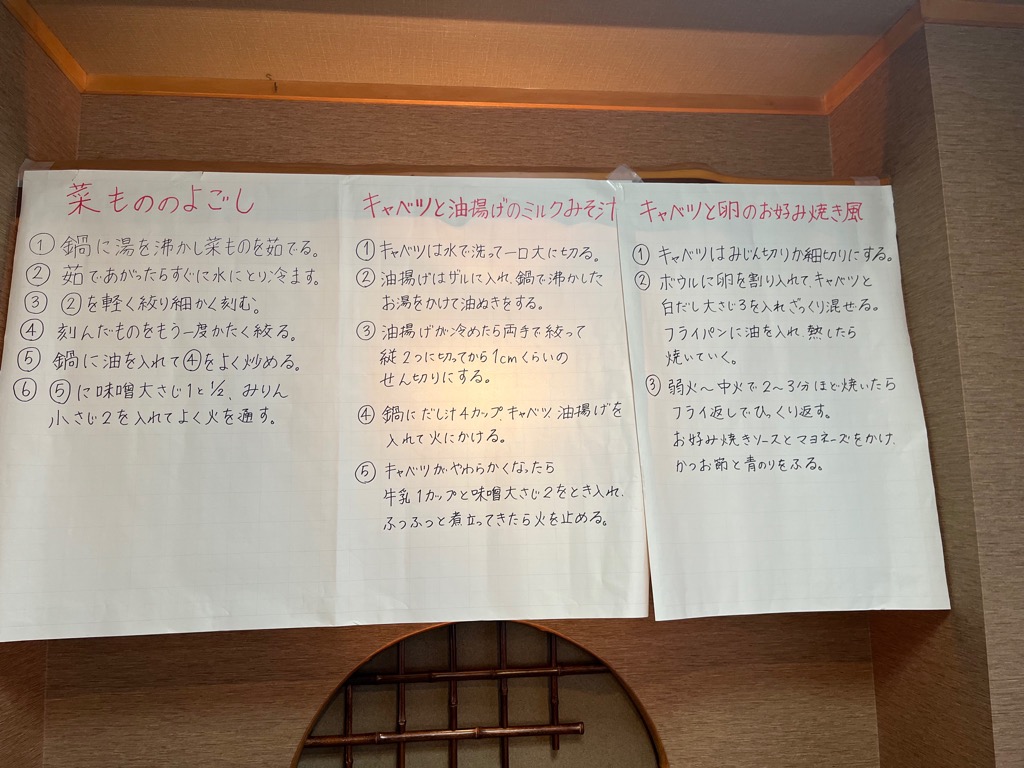 菜もののよごし
① 鍋に湯を沸かし菜ものを茹でる。
② 茹であがったらすぐに水にとり冷ます。
③ ②を軽く絞り細かく刻む。
④ 刻んだものをもう一度かたく絞る。
⑤ 鍋に油を入れて④をよく炒める。
⑥ ⑤に味噌大さじ1と½、みりん
小さじ2を入れてよく火を通す。
キャベツと油揚げのミルクみそ汁
① キャベツは水で洗って一口大に切る。
② 油揚げはザルに入れ、鍋で沸かした
お湯をかけて油ぬきをする。
③ 油揚げが冷めたら両手で絞って
縦2つに切ってから1cmくらいの
せん切りにする。
④ 鍋にだし汁4カップキャベツ、油揚げを
入れて火にかける。
⑤ キャベツがやわらかくなったら
牛乳1カップと味噌大さじ2をとき入れ、
ふつふつと煮立ってきたら火を止める。
キャベツと卵のお好み焼き風
① キャベツはみじん切りか細切りにする。
② ボウルに卵を割り入れて、キャベツと
白だし大さじ3を入れざっくり混ぜる。
フライパンに油を入れ、熱したら
焼いていく。
③ 弱火〜中火で2〜3分ほど焼いたら
フライ返しでひっくり返す。
お好み焼きソースとマヨネーズをかけ、
かつお節と青のりをふる。